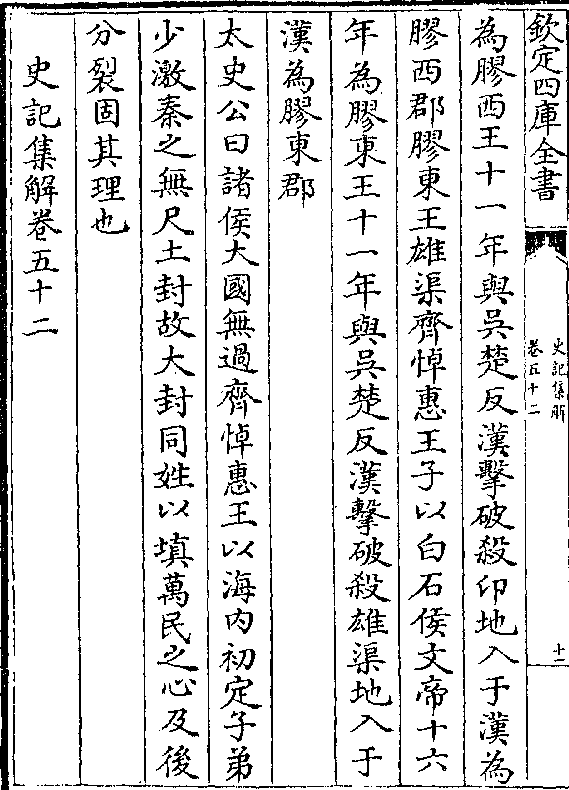 欽定四庫全書
史記集解
卷五十二
十二
為膠西王十一年與吳楚反漢擊破殺卬地入于漢為
膠西郡膠東王雄渠齊悼惠王子以白石侯文帝十六
年為膠東王十一年與吳楚反漢擊破殺雄渠地入于
漢為膠東郡
太史公曰諸侯大國無過齊悼惠王以海内初定子弟
少激秦之無尺土封故大封同姓以填萬民之心及後
分裂固其理也
史記集解卷五十二